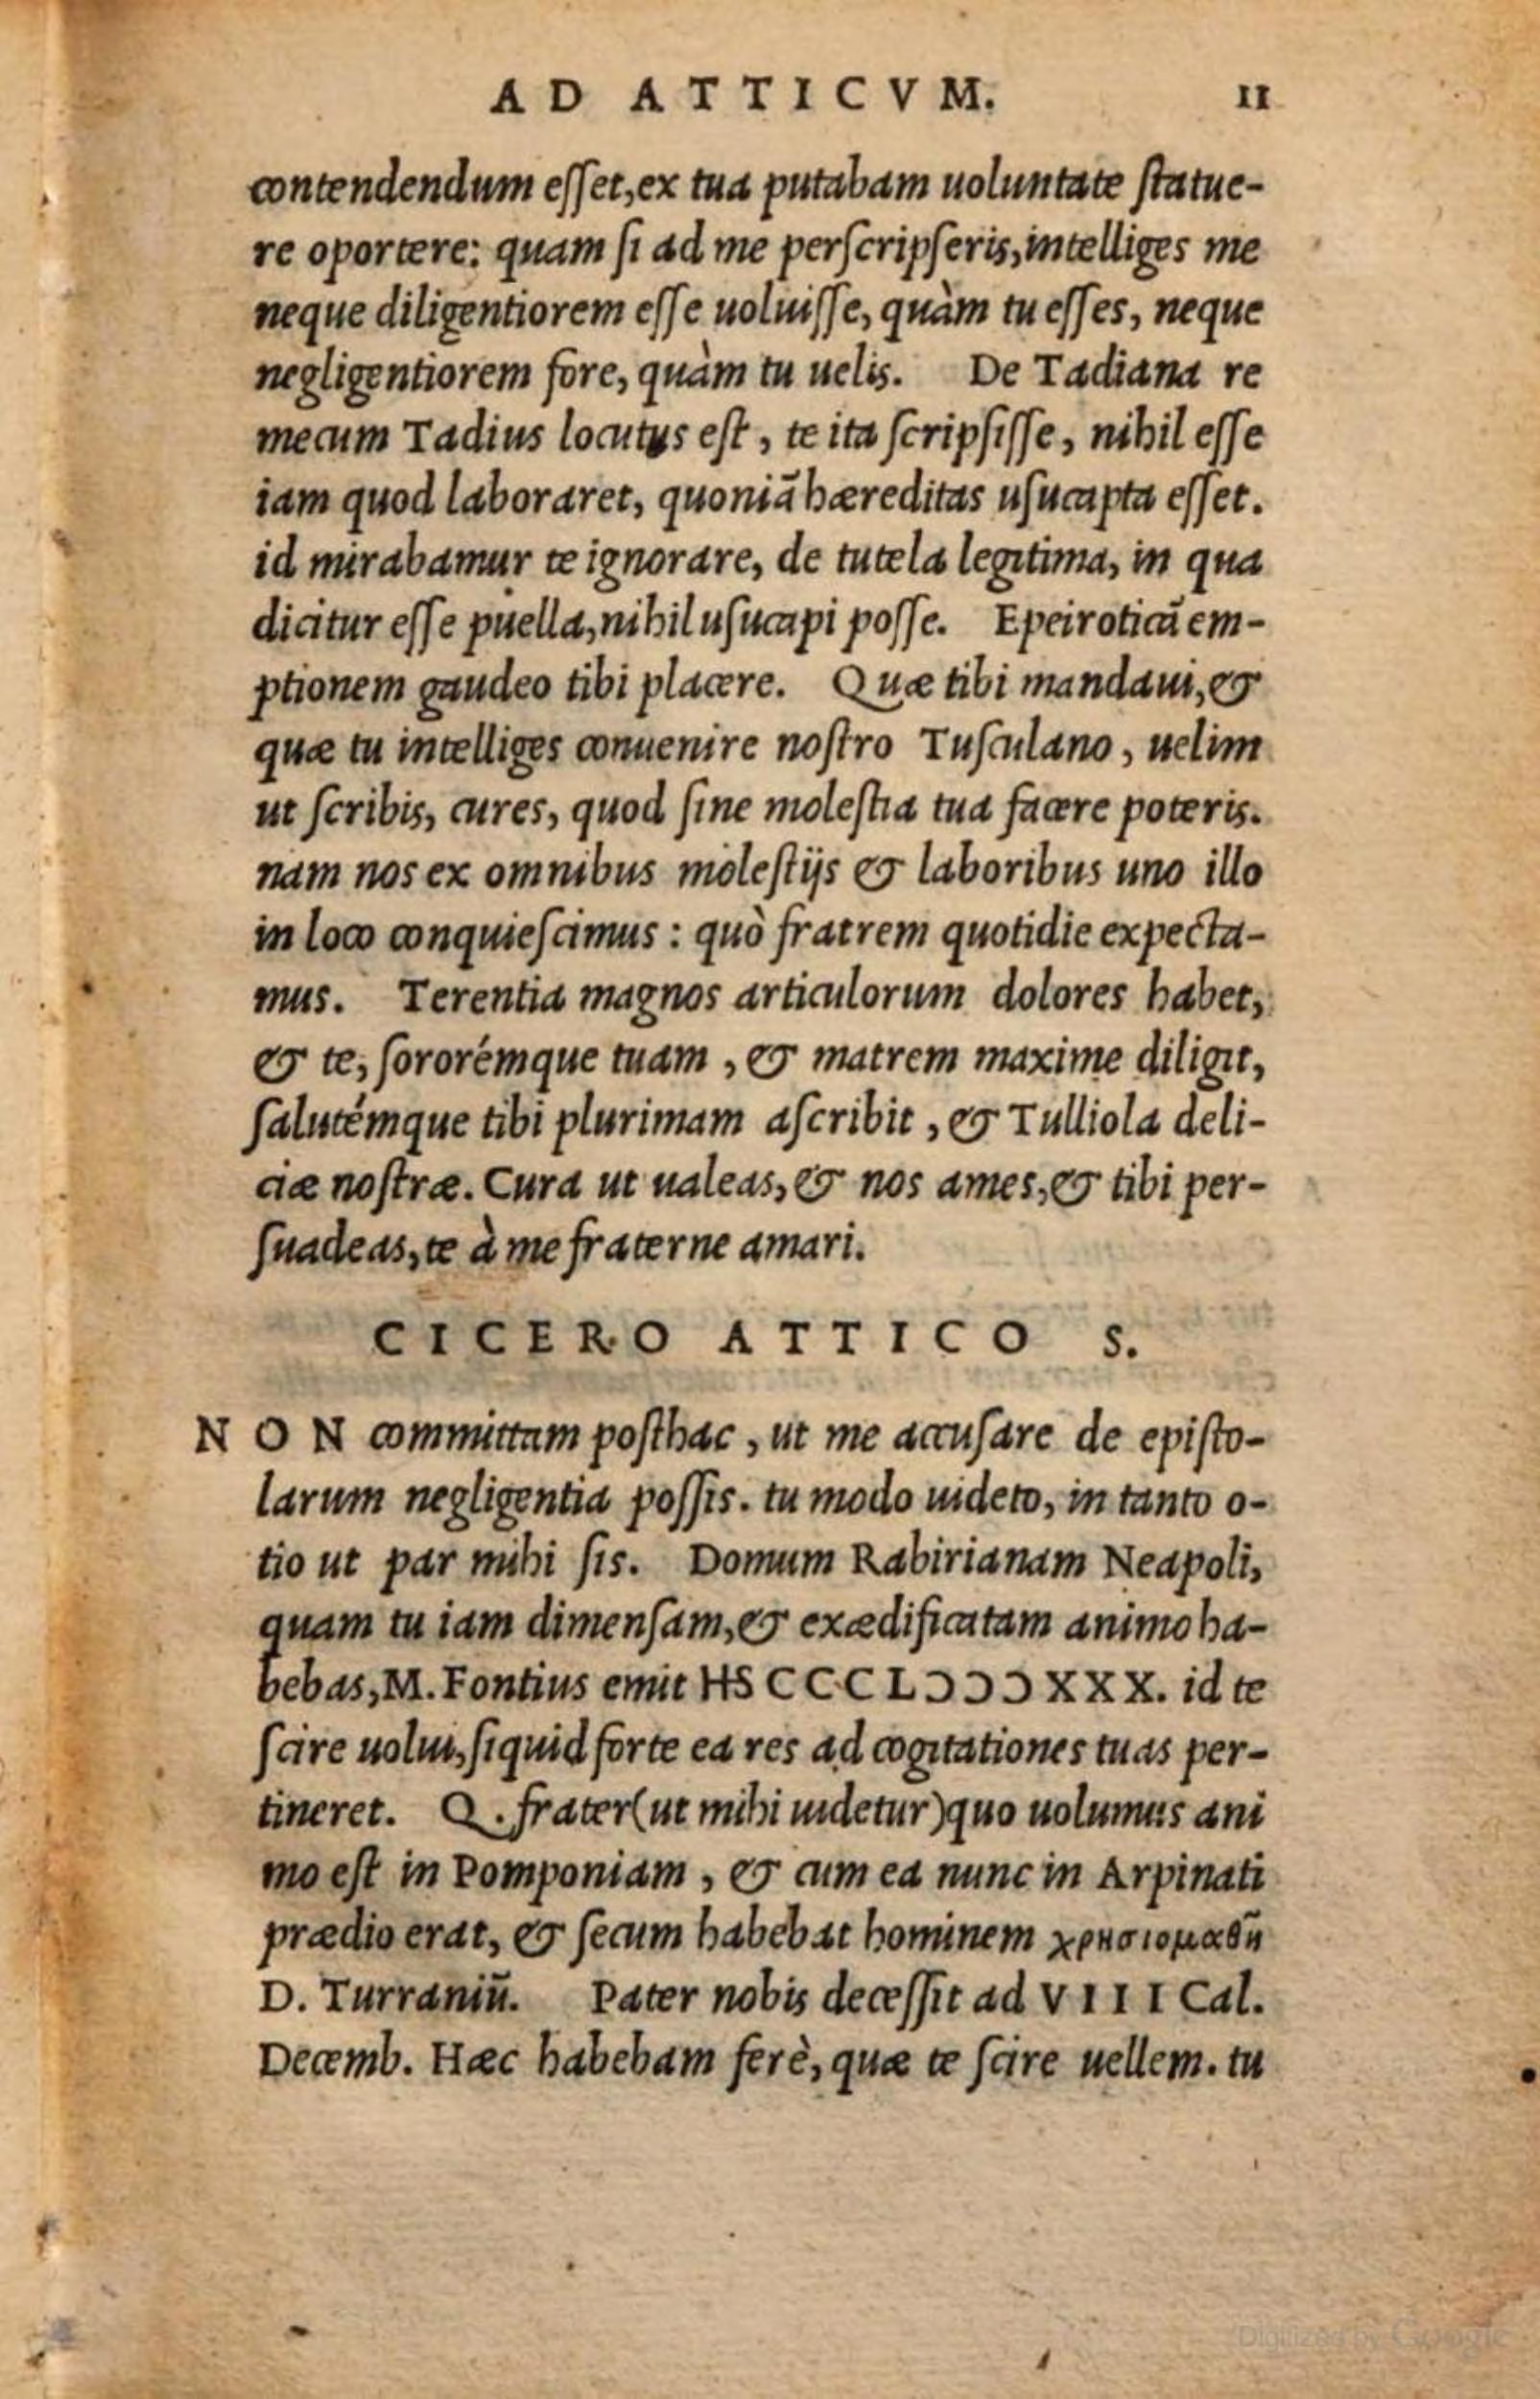 AD ATTICVM. 11
contendendum eſſet,ex tua putabam uoluntate ſtatue-
re oportere: quam ſi ad me perſcripſeris,intelliges me
neque diligentiorem eſſe uoluiſſe, quàm tu eſſes, neque
negligentiorem fore, quàm tu uelis. De Tadiana re
mecum Tadius locutus eſt, te ita ſcripſiſſe, nihil eſſe
iam quod laboraret, quoniã hæreditas uſucapta eſſet.
id mirabamur te ignorare, de tutela legitima, in qua
dicitur eſſe puella,nihil uſucapi poſſe. Epeiroticã em-
ptionem gaudeo tibi placere. Quæ tibi mandaui,&
quæ tu intelliges conuenire noſtro Tuſculano, uelim
ut ſcribis, cures, quod ſine moleſtia tua facere poteris.
nam nos ex omnibus moleſtijs & laboribus uno illo
in loco conquieſcimus: quò fratrem quotidie expecta-
mus. Terentia magnos articulorum dolores habet,
& te, ſororémque tuam, & matrem maxime diligit,
ſalutémque tibi plurimam aſcribit, & Tulliola deli-
ciæ noſtræ. Cura ut ualeas,& nos ames,& tibi per-
ſuadeas,te à me fraterne amari.
CICERO ATTICO S.
NON committam poſthac, ut me accuſare de epiſto-
larum negligentia poſſis. tu modo uideto, in tanto o-
tio ut par mihi ſis. Domum Rabirianam Neapoli,
quam tu iam dimenſam,& exædificatam animo ha-
bebas,M. Fontius emit HS CCCLↃↃↃXXX. id te
ſcire uolui,ſiquid forte ea res ad cogitationes tuas per-
tineret. Q. frater(ut mihi uidetur)quo uolumus ani
mo eſt in Pomponiam, & cum ea nunc in Arpinati
prædio erat, & ſecum habebat hominem χρησιομαθῆ
D. Turraniũ. Pater nobis deceſſit ad VIII Cal.
Decemb. Hæc habebam ferè, quæ te ſcire uellem. tu
Digitized by Google